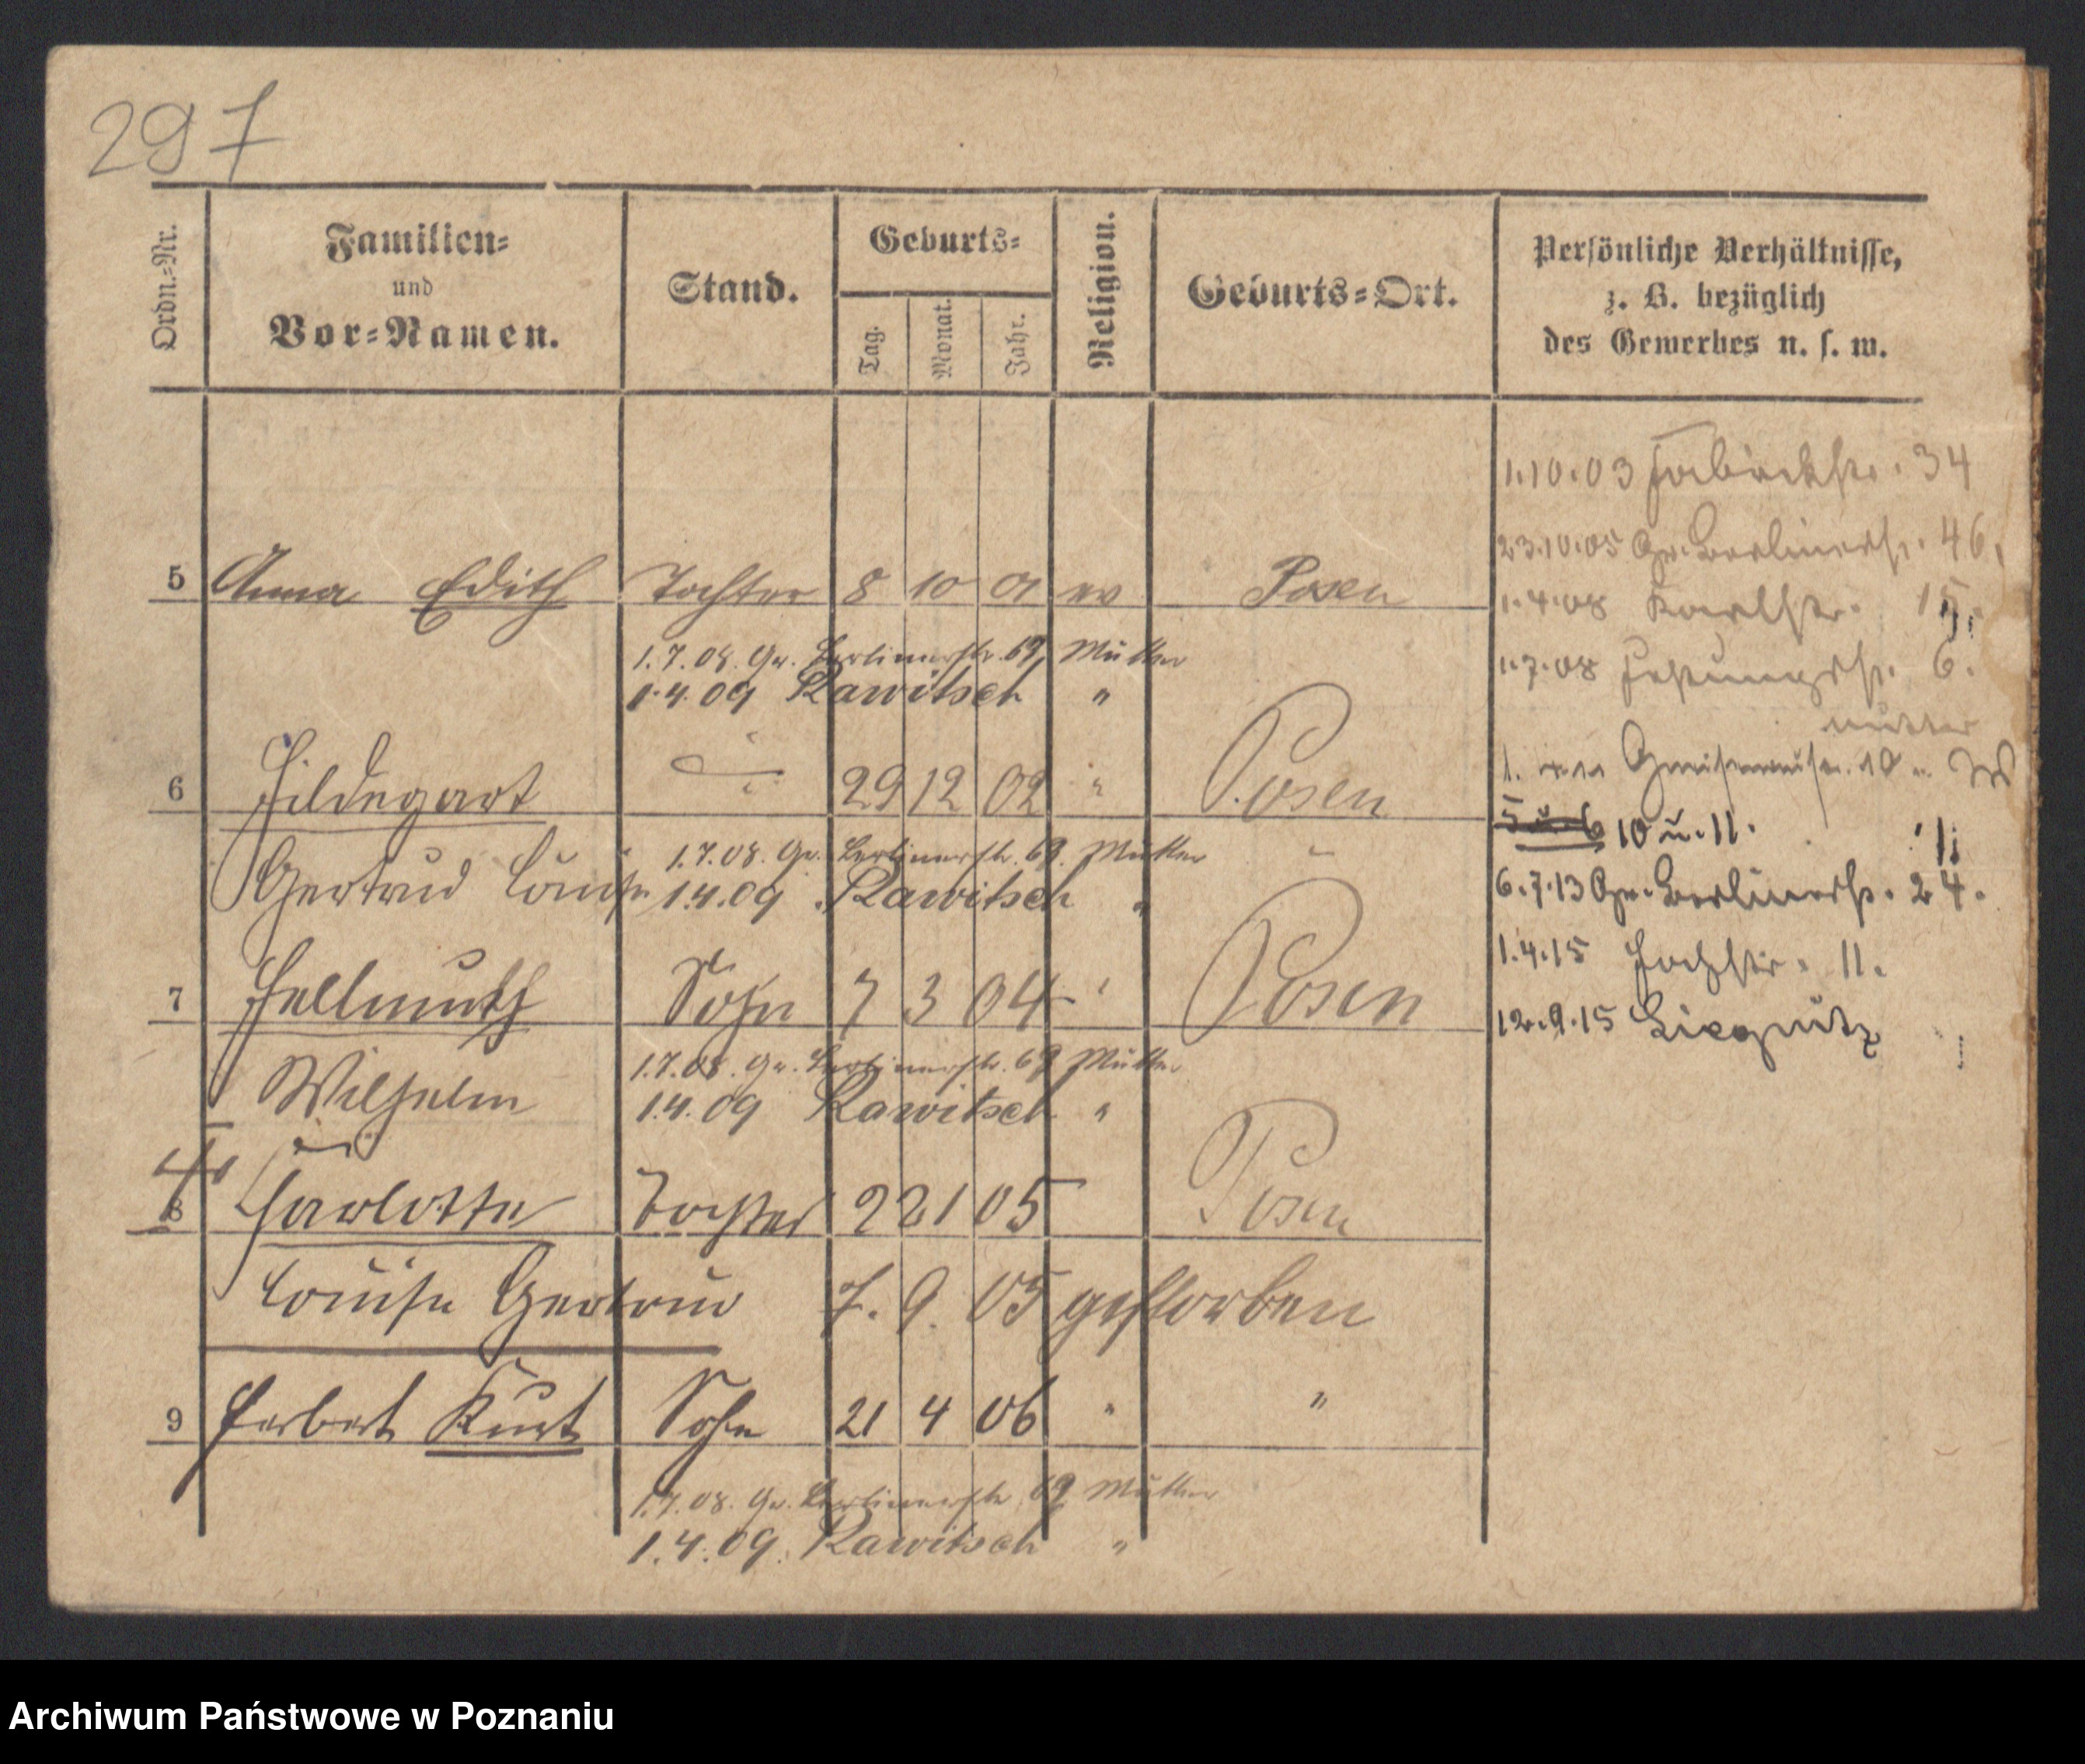 297
Ordn.-Nr.
Familien-
und
Vor-Namen.
Stand.
Geburts-
Tag.
Monat.
Jahr.
Religion.
Geburts-Ort.
Persönliche Verhältnisse,
z. B. bezüglich
des Gewerbes u. s. w.
5 Anna Edith Tochter 8 10 01 ev Posen
1.7.08. Gr. Berlinerstr. 69 Mutter
1.4.09 Rawitsch "
6 Hildegart 29 12 02 " Posen
Gertrud Louise 1.7.08. Gr. Berlinerstr. 69. Mutter
1.4.09 Rawitsch "
7 Hellmuth Sohn 7 3 04 " Posen
1.7.08. Gr. Berlinerstr. 69 Mutter
Wilhelm 1.4.09 Rawitsch "
8 Charlotte Tochter 22 1 05 Posen
Louise Gertrud 7. 9. 05 gestorben
9 Herbert Kurt Sohn 21 4 06 " "
1.7.08. Gr. Berlinerstr. 69 Mutter
1.4.09. Rawitsch "
1.10.03 34
23.10.05 Gr. Berlinerstr. 46.
1.4.08 Karlstr. 15.
1.7.08 Festungsstr. 6.
Mutter
1. Gneisenaustr. 10
5 u. 6 10 u. 11.
6.7.13 Gr. Berlinerstr. 24.
1.4.15 Hochstr. 11.
12.9.15 Liegnitz
Archiwum Państwowe w Poznaniu